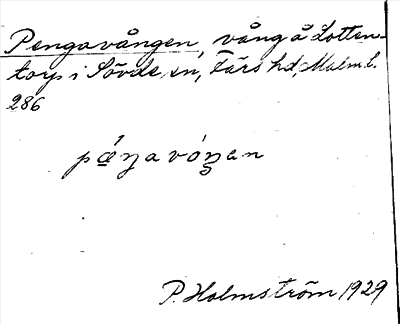 Pengavången, vång å Lotten-
torp i Sövde sn, Färs hd, Malm. l.
286
pǽŋavóŋan
P. Holmström 1929